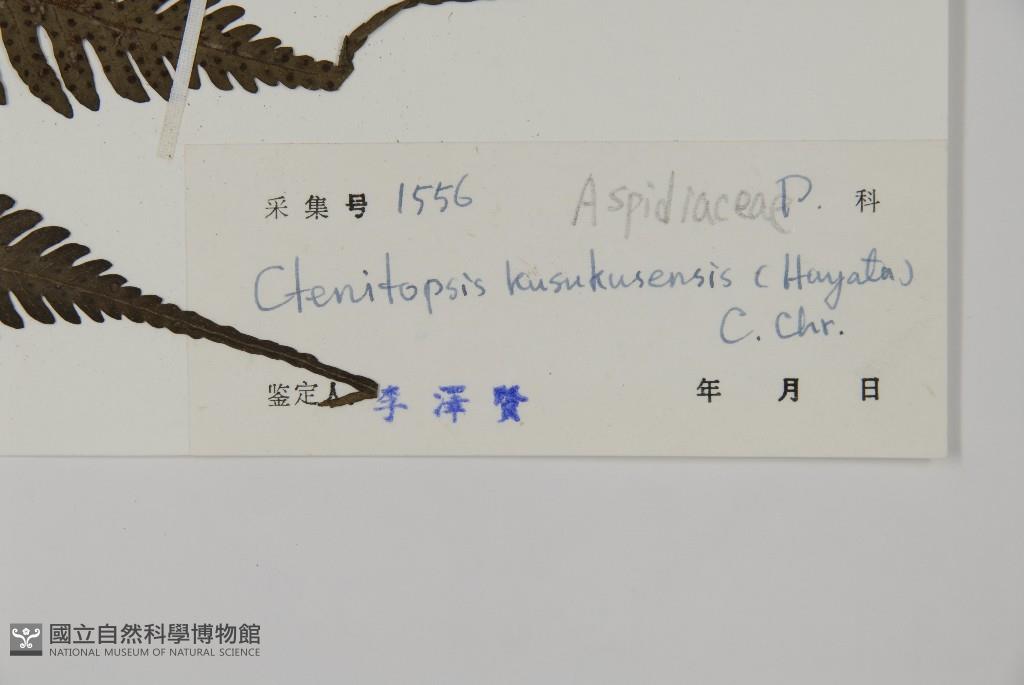 采集号 1556 Aspidiaceae P. 科
Ctenitopsis kusukusensis (Hayata)
C. Chr.
鉴定人 李澤賢 年 月 日
國立自然科學博物館
NATIONAL MUSEUM OF NATURAL SCIENCE